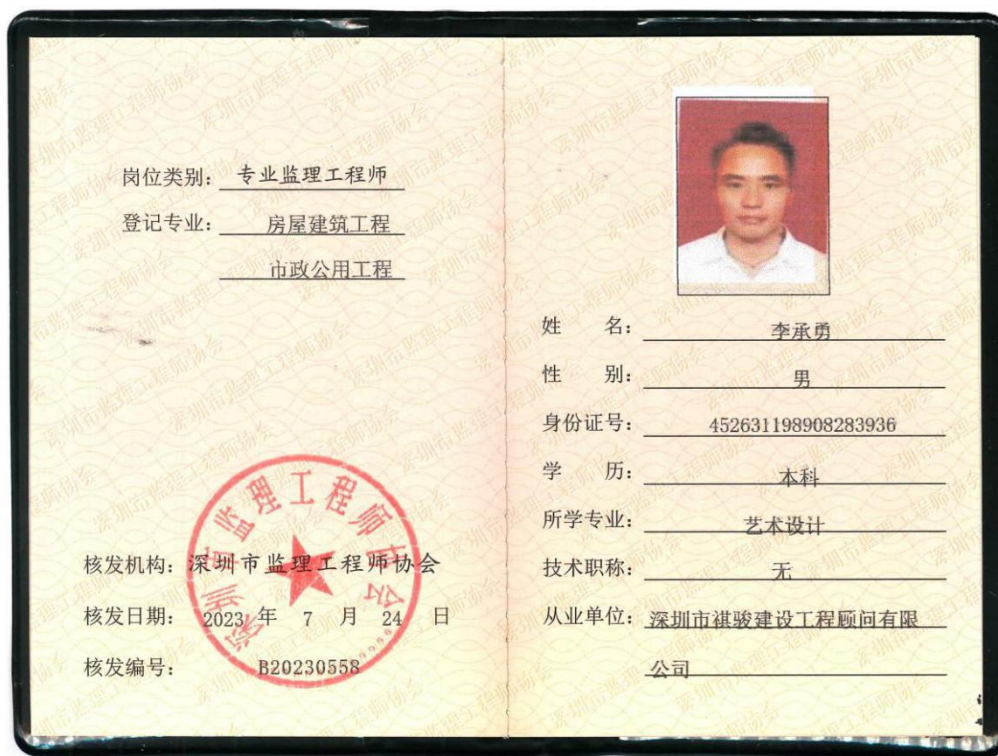 岗位类别：专业监理工程师
登记专业：房屋建筑工程
市政公用工程
深圳市监理工程师协会
核发机构：深圳市监理工程师协会
核发日期：2023 年 7 月 24 日
核发编号：B20230558
姓 名：李承勇
性 别：男
身份证号：452631198908283936
学 历：本科
所学专业：艺术设计
技术职称：无
从业单位：深圳市祺骏建设工程顾问有限
公司